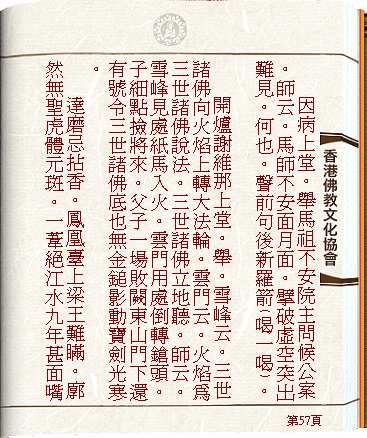 因病上堂。舉馬祖不安院主問候公案
。師云。馬師不安面月面。擘破虛空突出
難見。何也。聲前句後新羅箭(喝一喝)。
開爐謝維那上堂。舉。雪峰云。三世
諸佛向火焰上轉大法輪。雲門云。火焰為
三世諸佛說法。三世諸佛立地聽。師云。
雪峰見處紙馬入火。雲門用處倒轉鎗頭。
子細點撿將來。父子一場敗闕東山門下還
有號令三世諸佛底也無金鎚影動寶劍光寒
。
達磨忌拈香。鳳凰臺上梁王難瞞。廓
然無聖虎體元斑。一葦絕江水九年甚面嘴
香港佛教文化協會
第57頁